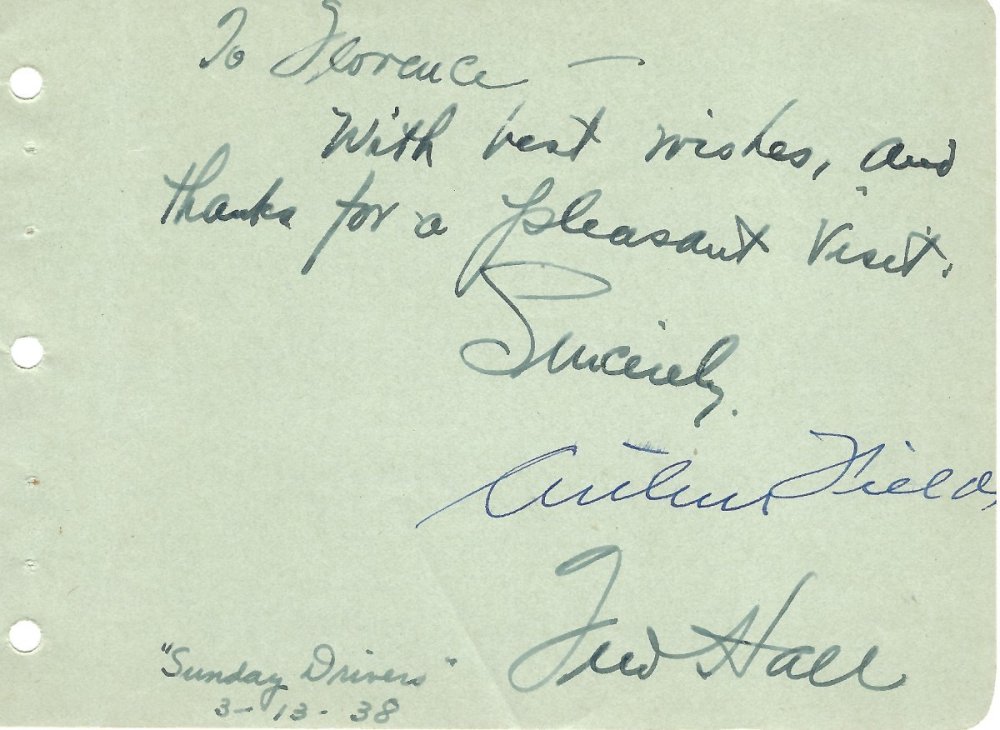 To Florence —
With best wishes, and
thanks for a pleasant visit.
Sincerely,
Arthur Fields
Fred Hall
"Sunday Drivers"
3-13-38